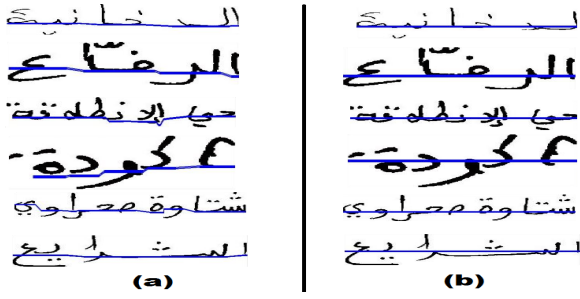 الدخانية
الرضّاع
حي الإنطلاقة
أكودة
شتاوة صحراوي
الشرايع
(a)
الدخانية
الرضّاع
حي الإنطلاقة
أكودة
شتاوة صحراوي
الشرايع
(b)